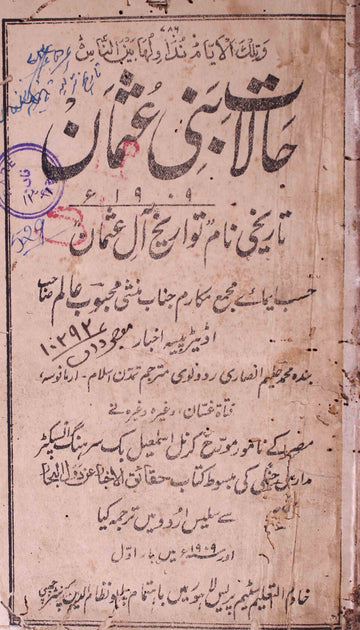 ۷۸۶
وَتِلْكَ الْاَيَّامُ نُدَاوِلُهَا بَيْنَ النَّاسِ
حالات بنی عثمان
۱۹۰۹ء
تاریخی نام تواریخ آل عثمان
حسب ایمائے مجمع مکارم جناب منشی محبوب عالم صاحب
اڈیٹر پیسہ اخبار
۱۰۲۹۲
بندہ محمد حلیم انصاری ردولوی مترجم تمدن اسلام۔ ارمانوسہ،
فتاة غسان، وغیرہ وغیرہ نے
مصر کے نامور مورخ کرنل اسمٰعیل بک سرہنگ انسپکٹر
مدارس جنگی کی مبسوط کتاب حقائق الاخبار عن دول البحار
سے سلیس اردو میں ترجمہ کیا
اور ۱۹۰۹ء میں بار اول
خادم التعلیم سٹیم پریس لاہور میں باہتمام بابو نظام الدین پرنٹر چھپی